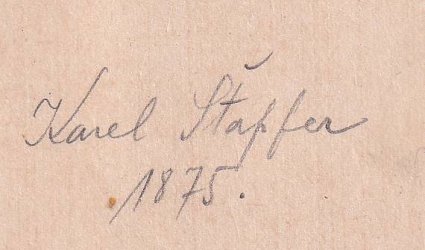 Karel Štapfer
1875.